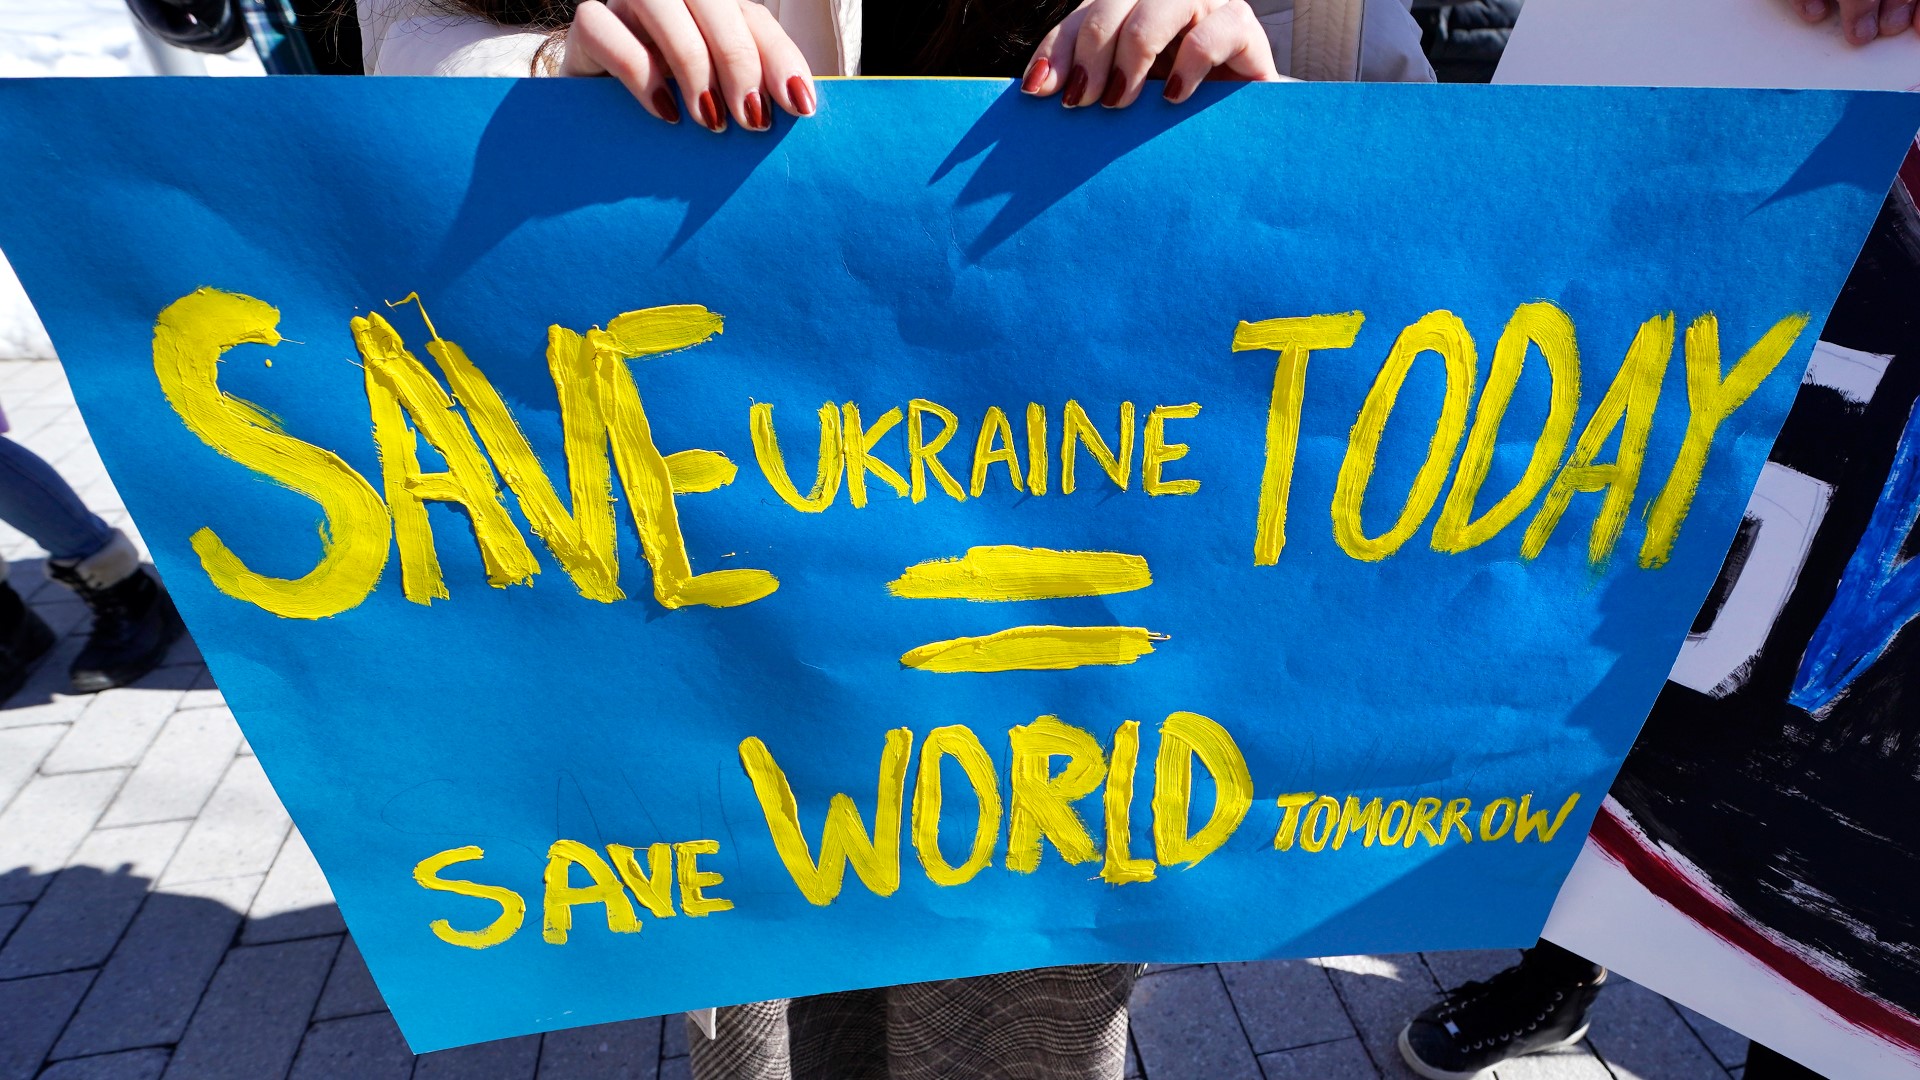 SAVE UKRAINE TODAY
=
SAVE WORLD TOMORROW